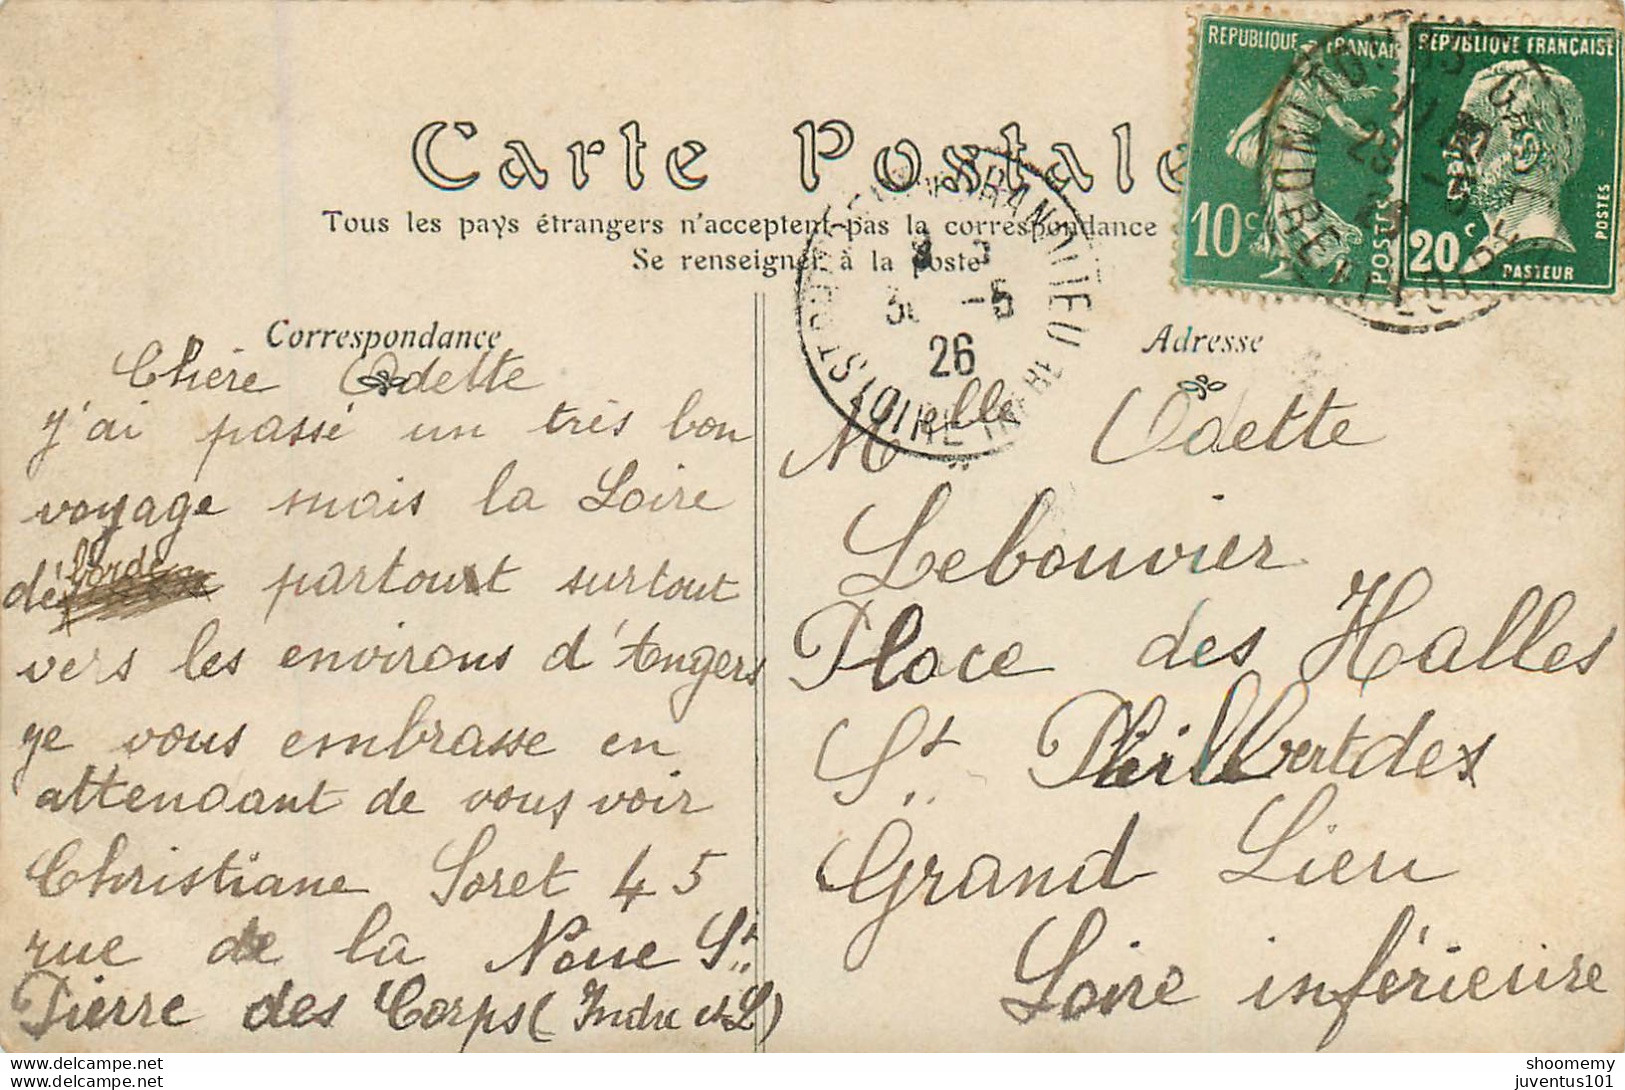 Carte Postale
Tous les pays étrangers n'acceptent pas la correspondance
Se renseigner à la poste
REPUBLIQUE FRANÇAI
10c
POSTES
REPUBLIQUE FRANÇAISE
20c
POSTES
PASTEUR
TOURS GARE
INDRE ET LOIRE
GRANDLIEU
30 -5
26
LOIRE INFRE
Correspondance
Chère Odette
j'ai passé un très bon
voyage mais la Loire
déborde partout surtout
vers les environs d'Angers
je vous embrasse en
attendant de vous voir
Christiane Soret 45
rue de la Noue St
Pierre des Corps (Indre et L)
Adresse
Melle Odette
Lebouvier
Place des Halles
St Philbert de
Grand Lieu
Loire inférieure
shoomemy
juventus101